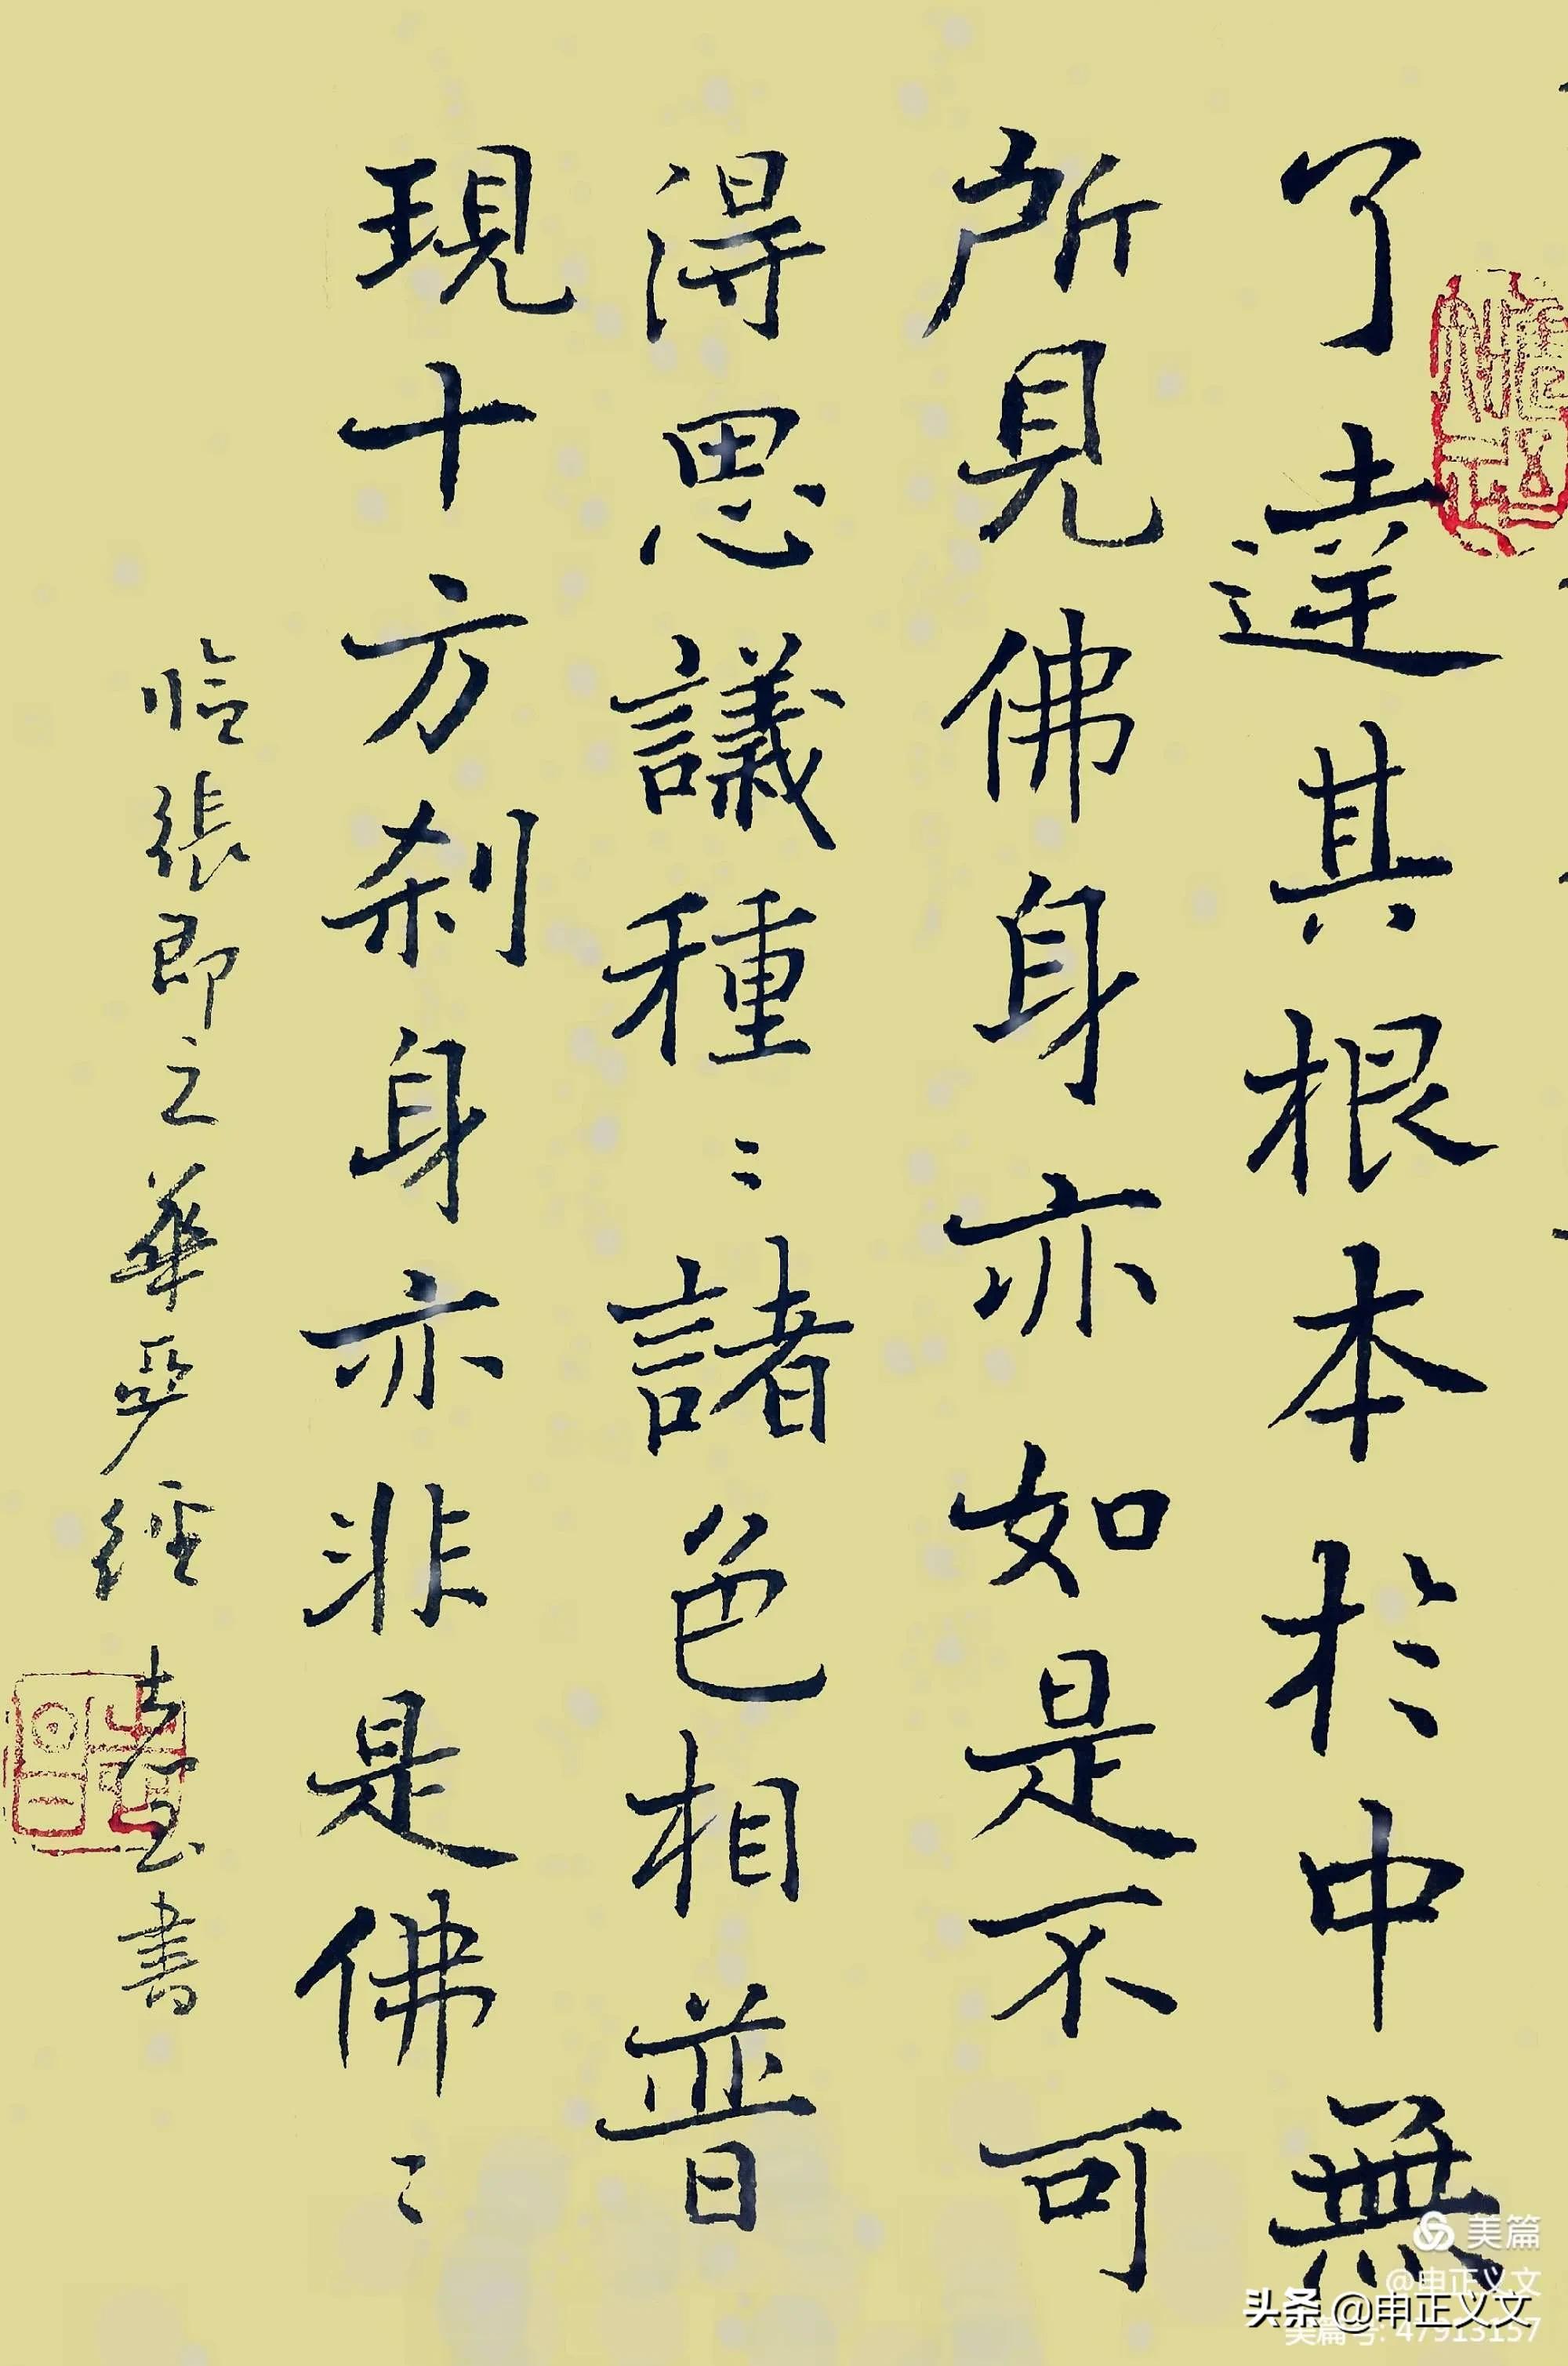 了達其根本於中無
所見佛身亦如是不可
得思議種〻諸色相普
現十方刹身亦非是佛〻
临張即之華嚴經 書
美篇
@申正义文
头条 @申正义文
美篇号: 47913157